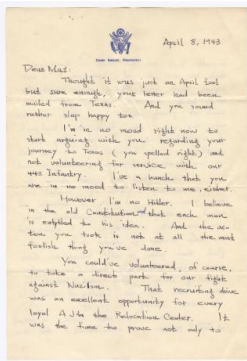 April 8, 1943
Dear Mas:
Thought it was just an April fool
but sure enough, your letter had been
mailed from Texas. And you sound
rather slap happy too.
I'm in no mood right now to
start arguing with you regarding your
journey to Texas (you spelled right) and
not volunteering for service with our
442 Infantry. I've a hunch that you
are in no mood to listen to me, either.
However I'm no Hitler. I believe
in the old Constitution that each man
is entitled to his idea. And the ac-
tion you took is not at all the most
foolish thing you've done.
You could've volunteered, of course,
to take a direct part for our fight
against Nazism. That recruiting drive
was an excellent opportunity for every
loyal AJA in the Relocation Center. It
was the time to prove not only to